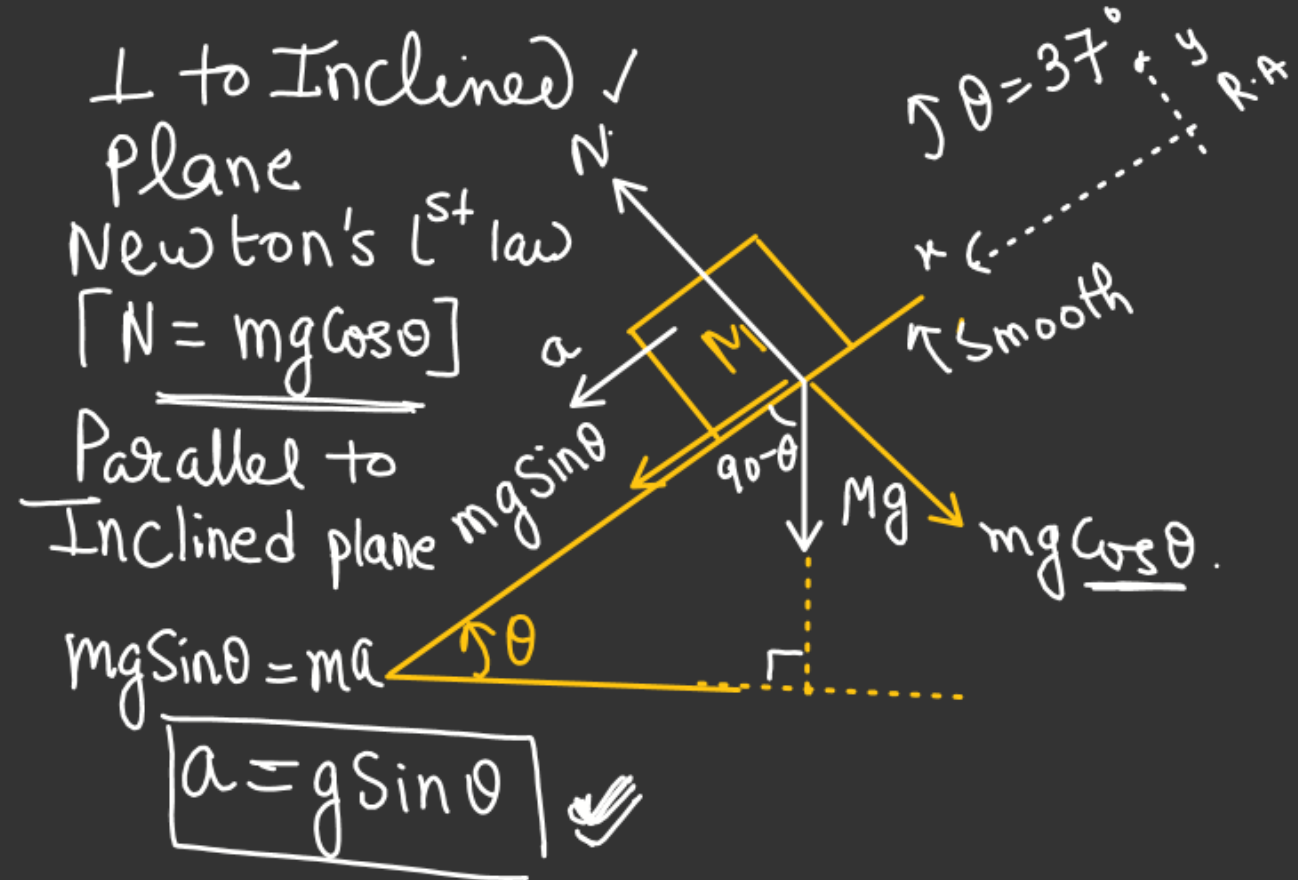 ⊥ to Inclined ✓
Plane
Newton's 1st law
[N = mgCosθ]
Parallel to
Inclined plane
mgSinθ = ma
a = gSinθ
N
a
M
mgSinθ
90-θ
Mg
mgCosθ.
θ
θ = 37°
y
R.A
x
Smooth